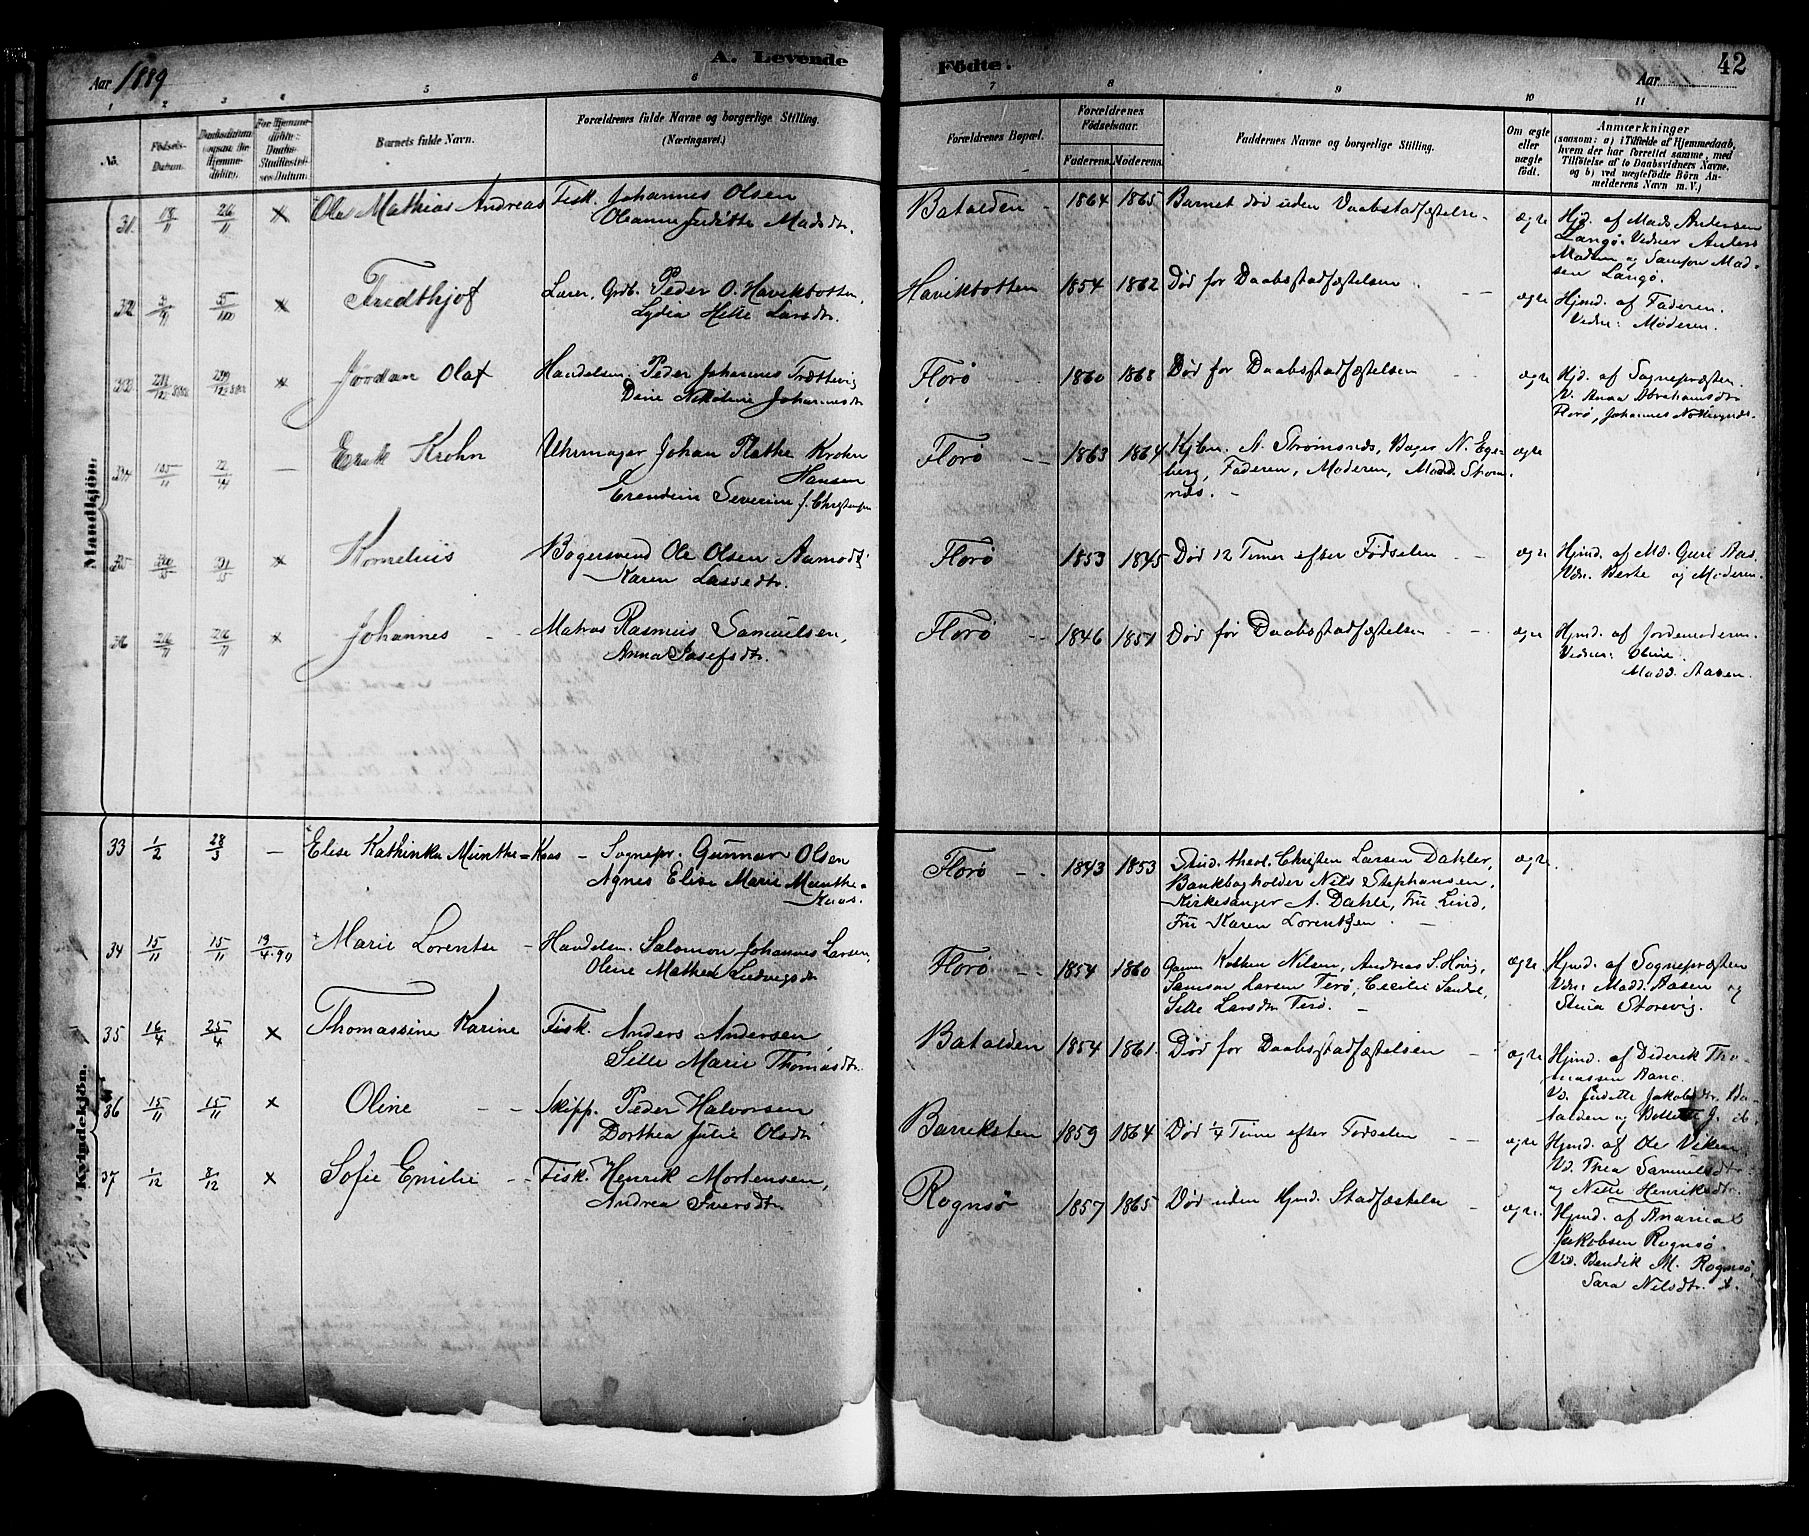 Aar 1889
A. Levende
Fødte.
Aar
42
1 2 3 4 5 6 7 8 9 10 11
No.
Fødsels-
Datum.
Barnets fulde Navn.
Forældrenes fulde Navne og borgerlige Stilling.
(Næringsvei.)
Forældrenes Bopæl.
Forældrenes
Fødselsaar.
Faderens. Moderens.
Faddernes Navne og borgerlige Stilling.
Om ægte
eller
uægte
født.
Anmærkninger
(saasom: a) i Tilfælde af Hjemmedaab,
hvem der har forrettet samme, med
Tilføielse af to Daabsvidners Navne,
og b) ved uægtefødte Børn An-
melderens Navn m. V.)
Mandkjön.
31. 18/11 26/11 × Ole Mathias Andreas Fisk. Johannes Olsen
Oleanne Juditte Madsdtr.
Batalden 1864 1865 Barnet død uden Daabstadfæstelse ægte
Hjd. af Mads Andersen
Langø. Vidner Anders
Madsen og Samson Mad-
sen Langø.
32 × Fridthjof Lærer, Grdb. Peder O. Havikbotten
Lydea Larsdtr.
Havikbotten 1854 1862 Død før Daabsstadfæstelsen ægte
Hjmd. af Faderen.
Vidne: Moderen.
× Jordan Olaf Handelsm. Peder Johannes Trættevig
Nikoline Johannesdtr
Florø 1860 1868 Død før Daabsstadfæstelsen ægte
Hjd. af Sognepræsten.
V. Anna Abrahamsdtr
Florø, Johannes
— Erik Krohn Uhrmager Johan Flathe Krohn
Hansen
Severine f. Christensen
Florø 1863 1864 Kjbm. A. Strømsnæs, Bager N. Ege-
berg, Faderen, Moderen, Madd. Strøm-
næs. ægte
35 × Kornelius Bagersvend Ole Olsen Aamodt
Karen Lassedtr.
Florø 1853 1845 Død 12 Timer efter Fødselen ægte
Hjmd. af Md. Aas.
Vidn. Berte og Moderen.
36 × Johannes Matros Rasmus Samuelsen,
Anna Josefsdtr.
Florø 1846 1851 Død før Daabsstadfæstelsen ægte
Hjmd. af Jordemoderen.
Vidner: Oline.
Madd. Aasen.
Kvindekjön.
33 1/2 28/3 — Elise Kathinka Munthe=Kaas Sognepr. Gunnar Olsen
Agnes Elise Marie Munthe=
Kaas.
Florø 1843 1853 Stud. theol. Christen Larsen Dahler,
Bankbogholder Nils Stephansen,
Kirkesanger A. Dahle, Fru Lind,
Fru Karen Lorentzen ægte.
34 15/11 15/11 13/4.90 Marie Lorentse Handelsm. Salomon Johannes Larsen,
Oline Mathea Ludvigsdtr
Florø 1854 1860 Nilsen, Andreas S. Høvig,
Samson Larsen Terø, Cecilie Sande,
Sille Larsdtr Terø. ægte
Hjmd. af Sognepræsten
Vidn: Madd. Aasen og
Stina Storevig.
35 16/4 25/4 × Thomassine Karine Fisk. Anders Andersen
Sille Marie Thomasdtr.
Batalden 1854 1861. Død før Daabsstadfæstelsen ægte
Hjmd. af Diderik Tho-
massen
Vid. Juditte Jakobsdtr. Ba-
talden og
36 15/11 15/11 × Oline Skipp. Peder Halvorsen
Dorthea Julie Olsdtr
Barreksten 1859 1864 Død 1/4 Time efter Fødselen ægte
Hjmd. af Ole Viken
Vd. Thea Samuelsdtr.
og Nille Henriksdtr.
37 1/12 8/12 × Sofie Emilie Fisk. Henrik Mortensen,
Andrea Iversdtr.
Rognsø 1857 1865 Død uden Hjmd. Stadfæstelse ægte.
Hjmd. af
Jakobsen Rognsø.
Vid. Bendik M. Rognsø,
Sara Nilsdtr.